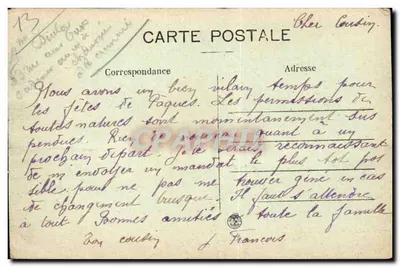 13
Cher Cousin,
CARTE POSTALE
Correspondance
Adresse
Nous avons un bien vilain temps pour
les fêtes de Pâques. Les permissions de
toutes natures sont momentanément sus
pendues. Rien de nouveau quant à un
prochain départ. Je te serais reconnaissant
de m'envoyer un mandat le plus tôt pos
sible pour ne pas me trouver gêné en cas
de changement brusque. Il faut s'attendre
à tout. Bonnes amitiés à toute la famille
Ton cousin
François